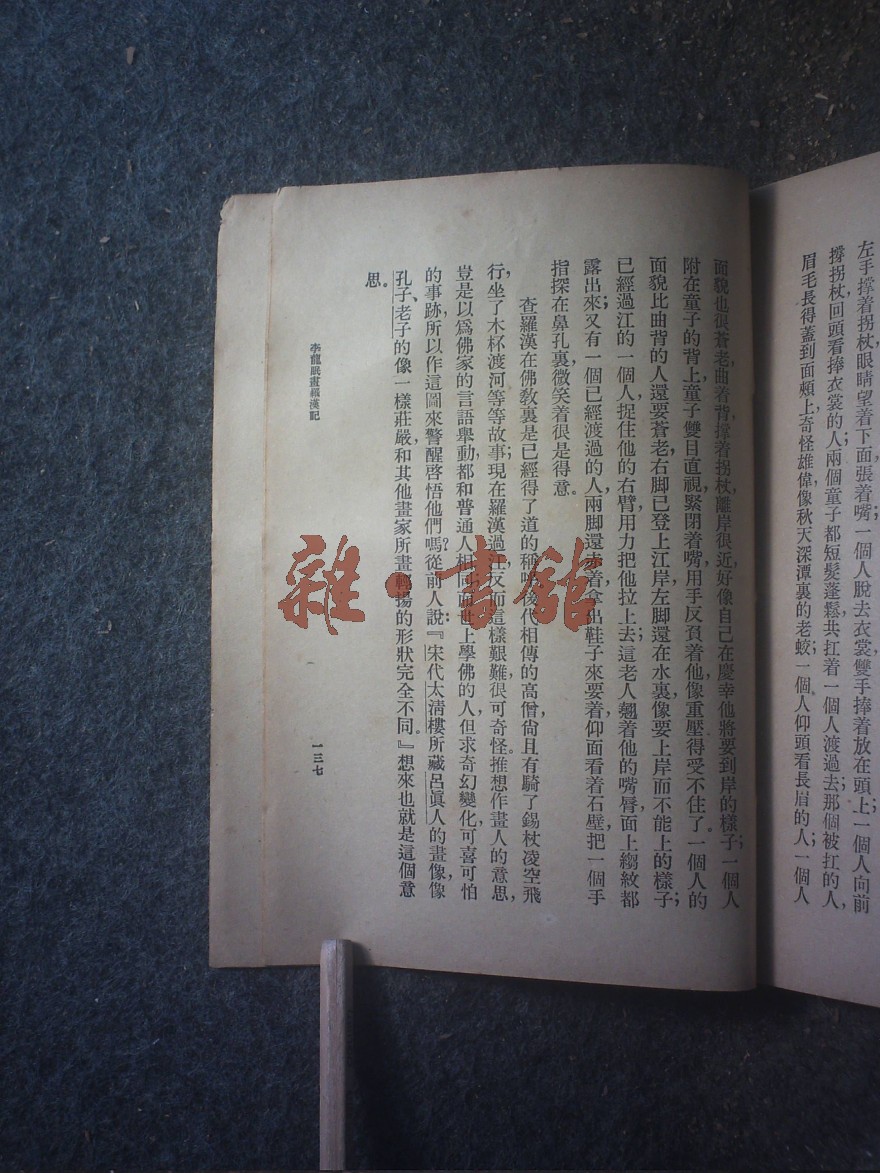 左手撐着拐杖眼睛望着下面張着嘴；一個人脫去衣裳雙手捧着放在頭上；一個人向前
撐拐杖，回頭看捧衣裳的人；兩個童子都短髮蓬鬆，共扛着一個人渡過去，那個被扛的人，
眉毛長得蓋到面頰上，奇怪雄偉，像秋天深潭裏的老蛟；一個人仰頭看長眉的人；一個人
面貌也很蒼老，曲着背，撐着拐杖，離岸很近，好像自己在慶幸他將要到岸的樣子；一個人
附在童子的背上，童子雙目直視，緊閉着嘴，用手反負着他，像重壓得受不住了。一個人的
面貌比曲背的人還要蒼老，右脚已登上江岸，左脚還在水裏，像要上岸而不能上的樣子；
已經過江的一個人，捉住他的右臂，用力把他拉上去，這老人翹着他的嘴脣，面上縐紋都
露出來；又有一個已經渡過的人，兩脚還赤着，拿出鞋子來要着，仰面看着石壁，把一個手
指探在鼻孔裏，微笑着很是得意。
查羅漢在佛敎裏是已經得了道的稱呼，後代相傳的高僧，尙且有騎了錫杖凌空飛
行，坐了木杯渡河等等故事；現在羅漢過江，反而這樣艱難，很可奇怪。推想作畫人的意思，
豈是以爲佛家的言語舉動，都和普通人相同，而世上學佛的人，但求奇幻變化，可喜可怕
的事跡，所以作這圖來警醒啓悟他們嗎？從前人說：『宋代太清樓所藏呂眞人的畫像，像
孔子、老子的像一樣莊嚴，和其他畫家所畫輕揚的形狀完全不同。』想來也就是這個意
思。
李龍眠畫羅漢記
一三七
雜·書館